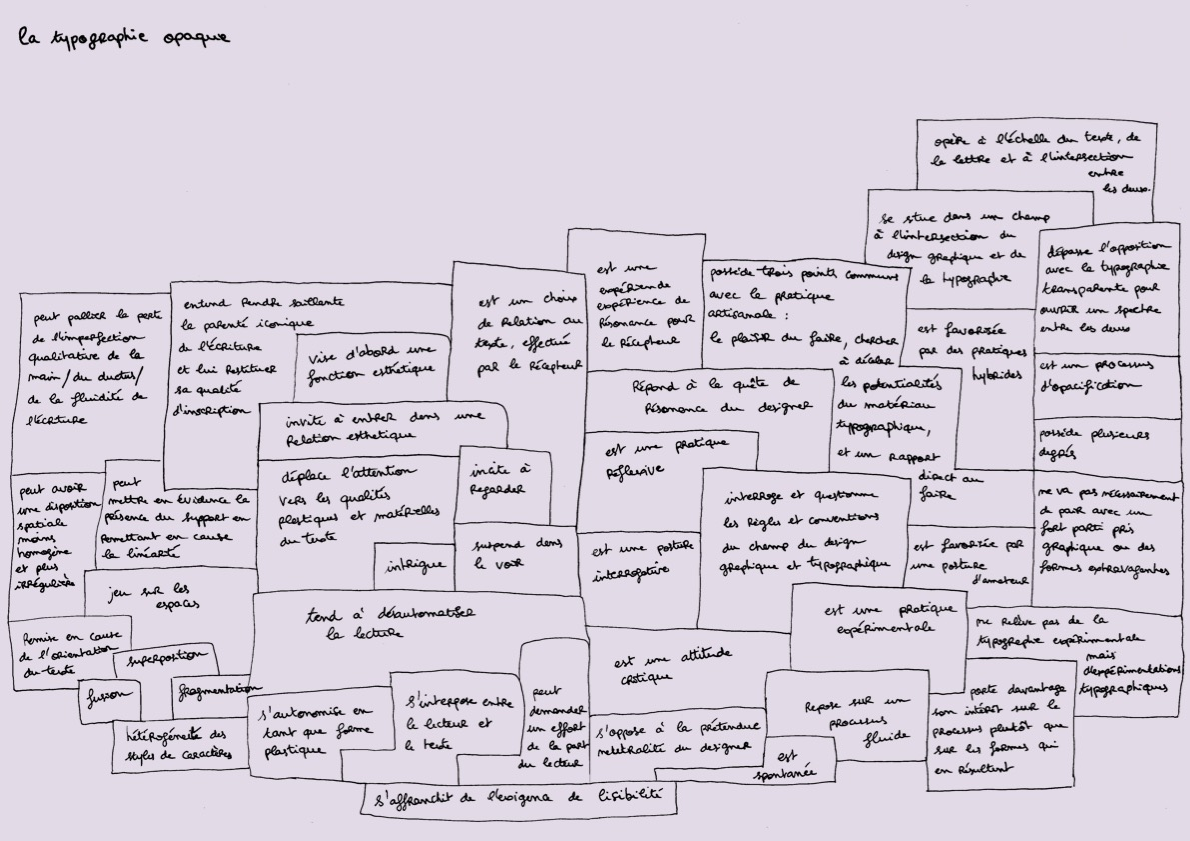 la typographie opaque
opère à l'échelle du texte, de
la lettre et à l'intersection
entre
les deux.
se situe dans un champ
à l'intersection du
design graphique et de
la typographie
dépasse l'opposition
avec la typographie
transparente pour
ouvrir un spectre
entre les deux
est une
expérience de
résonance pour
le récepteur
possède trois points communs
avec la pratique
artisanale :
le plaisir du faire, chercher
à déceler
les potentialités
du matériau
typographique,
et un rapport
direct au
faire
est favorisée
par des pratiques
hybrides
est un processus
d'opacification
possède plusieurs
degrés
ne va pas nécessairement
de pair avec un
fort parti pris
graphique ou des
formes extravagantes
peut pallier la perte
de l'imperfection
qualitative de la
main/du ductus/
de la fluidité de
l'écriture
entend rendre saillante
la parenté iconique
de l'écriture
et lui restituer
sa qualité
d'inscription
vise d'abord une
fonction esthétique
est un choix
de relation au
texte, effectué
par le récepteur
Répond à la quête de
résonance du designer
invite à entrer dans une
relation esthétique
est une pratique
réflexive
déplace l'attention
vers les qualités
plastiques et matérielles
du texte
incite à
regarder
interroge et questionne
les règles et conventions
du champ du design
graphique et typographique
peut avoir
une disposition
spatiale
moins
homogène
et plus
irrégulière
peut
mettre en évidence la
présence du support en
remettant en cause
la linéarité
intrigue
suspend dans
le voir
est une posture
interrogative
est favorisée par
une posture
d'amateur
jeu sur les
espaces
tend à désautomatiser
la lecture
est une pratique
expérimentale
ne relève pas de la
typographie expérimentale
mais
d'expérimentations
typographiques
Remise en cause
de l'orientation
du texte
superposition
fusion
fragmentation
hétérogénéité des
styles de caractères
est une attitude
critique
s'autonomise en
tant que forme
plastique
s'interpose entre
le lecteur et
le texte
peut
demander
un effort
de la part
du lecteur
s'oppose à la prétendue
neutralité du designer
Repose sur un
processus
fluide
est
spontanée
porte davantage
son intérêt sur le
processus plutôt que
sur les formes qui
en résultent
s'affranchit de l'exigence de lisibilité